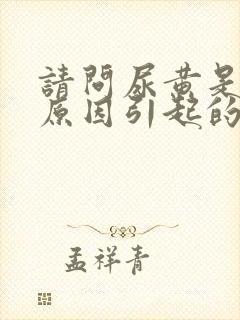 請問尿黃是
原因引起的
孟祥青